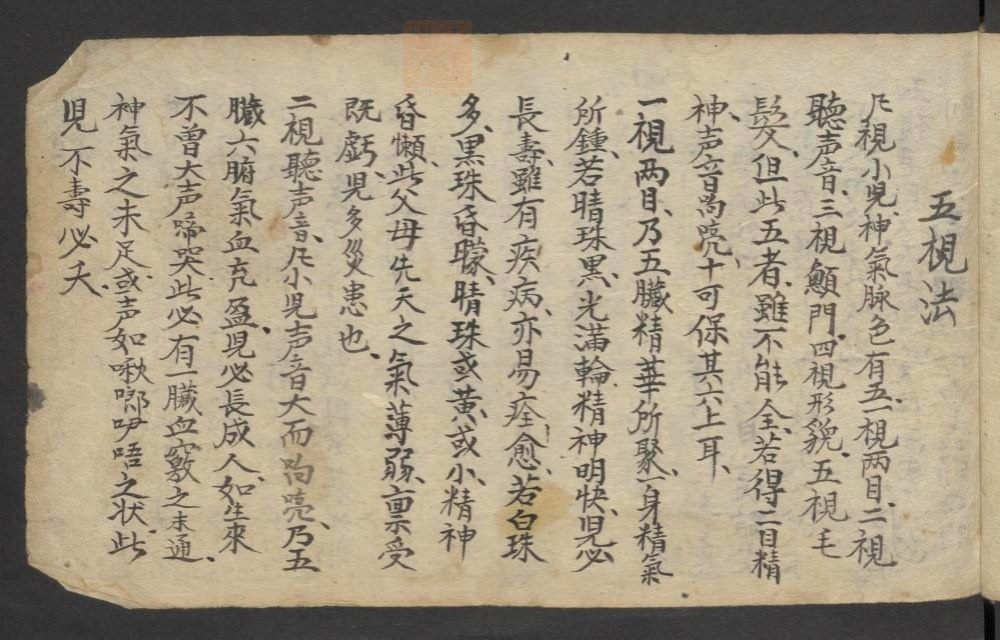 五視法
凡視小児神氣脉色有五、一視両目、二視
聽声音、三視顖門、四視形貌、五視毛
髮、但此五者、雖不能全、若得二目精
神、声音响亮、十可保其六上耳、
一視两目、乃五臟精華所聚、一身精氣
所鍾、若睛珠黑、光满輪、精神明快、児必
長壽、雖有疾病、亦易痊愈、若白珠
多、黑珠昏朦、睛珠或黄、或小、精神
昏懶、此父母先天之氣薄弱、禀受
既虧、児多災患也、
二視聽声音、凡小児声音大而响亮、乃五
臟六腑氣血充盈、児必長成人、如生來
不曾大声啼哭、此必有一臟血竅之未通、
神氣之未足、或声如啾唧咿唔之状、此
児不壽必夭、